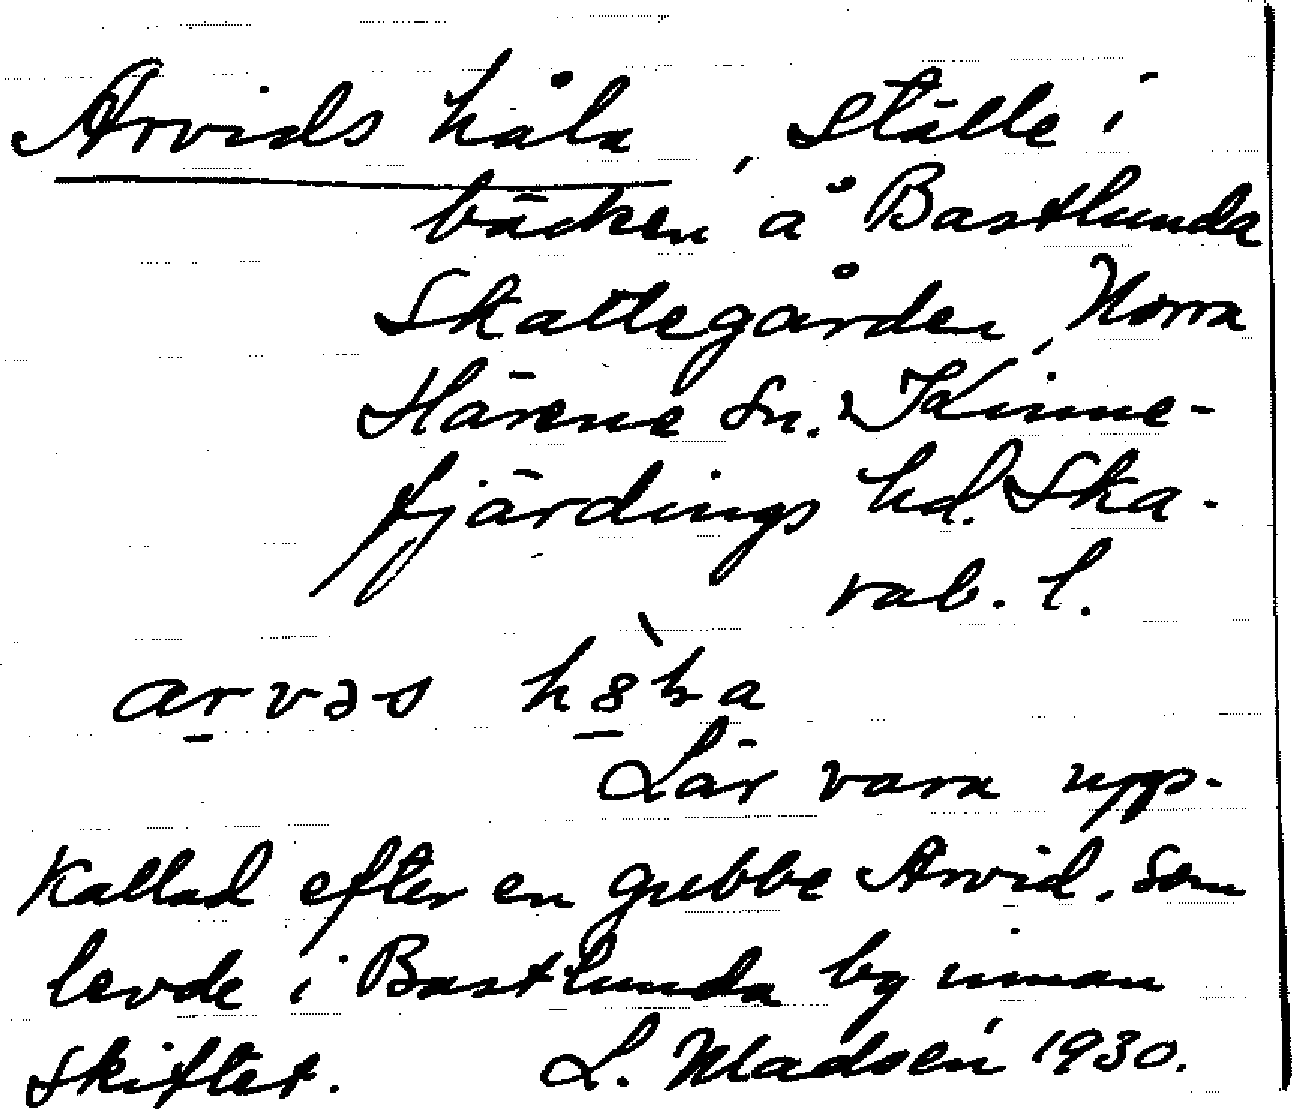 Arvids håla, ställe i
bäcken å Bastlunda
Skattegården, Norra
Härene sn. Kinne-
fjärdings hd. Ska-
rab. l.
arvəs
Lär vara upp-
kallad efter en gubbe Arvid, som
levde i Bastlunda by innan
skiftet. L. Madsén 1930.